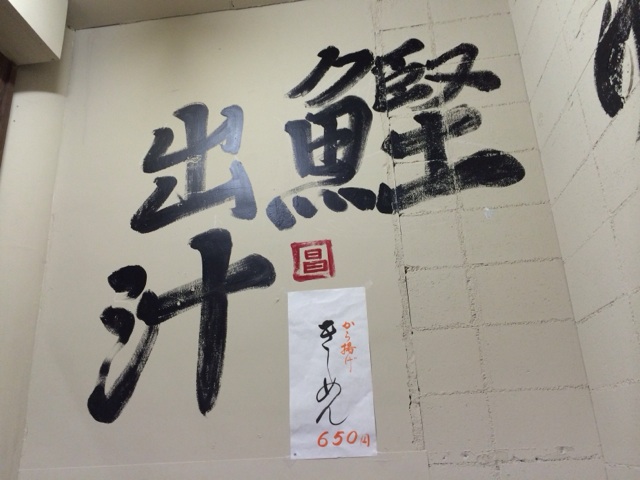 鰹
出汁
昌
から揚げ
きしめん
650円